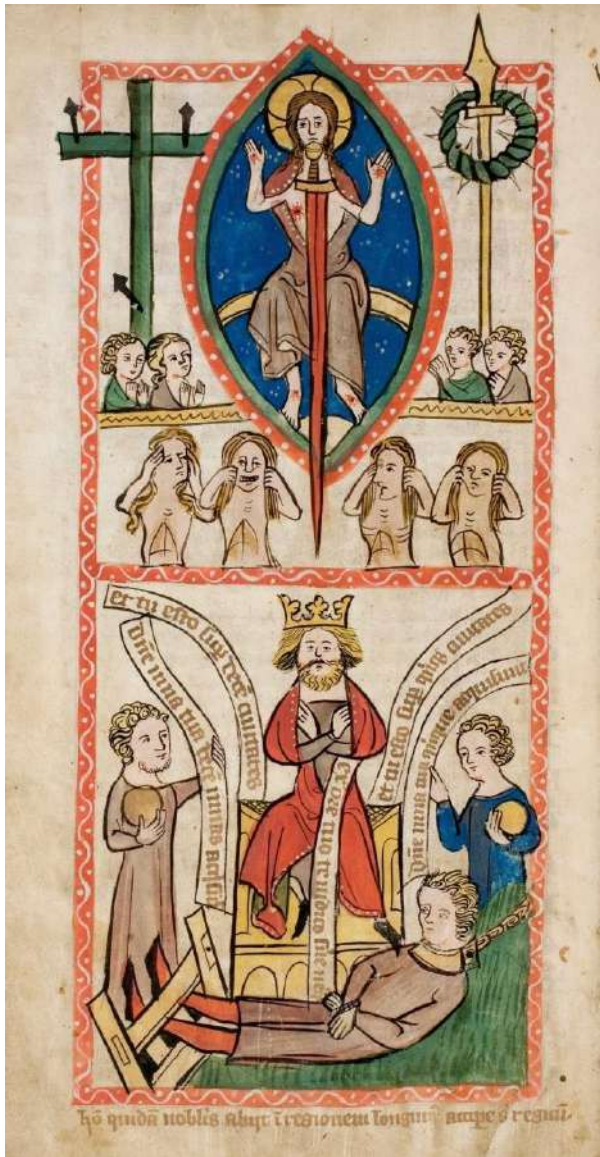 et tu esto sup decē ciuitates
Dn̄e mna tua decē mnas
ex ore tuo te iudico
et tu esto sup qinq ciuitates
Dn̄e mna tua qinque acquisiuit
hō quidā nobilis abijt ī regionem longinq̄ accipe s regnū